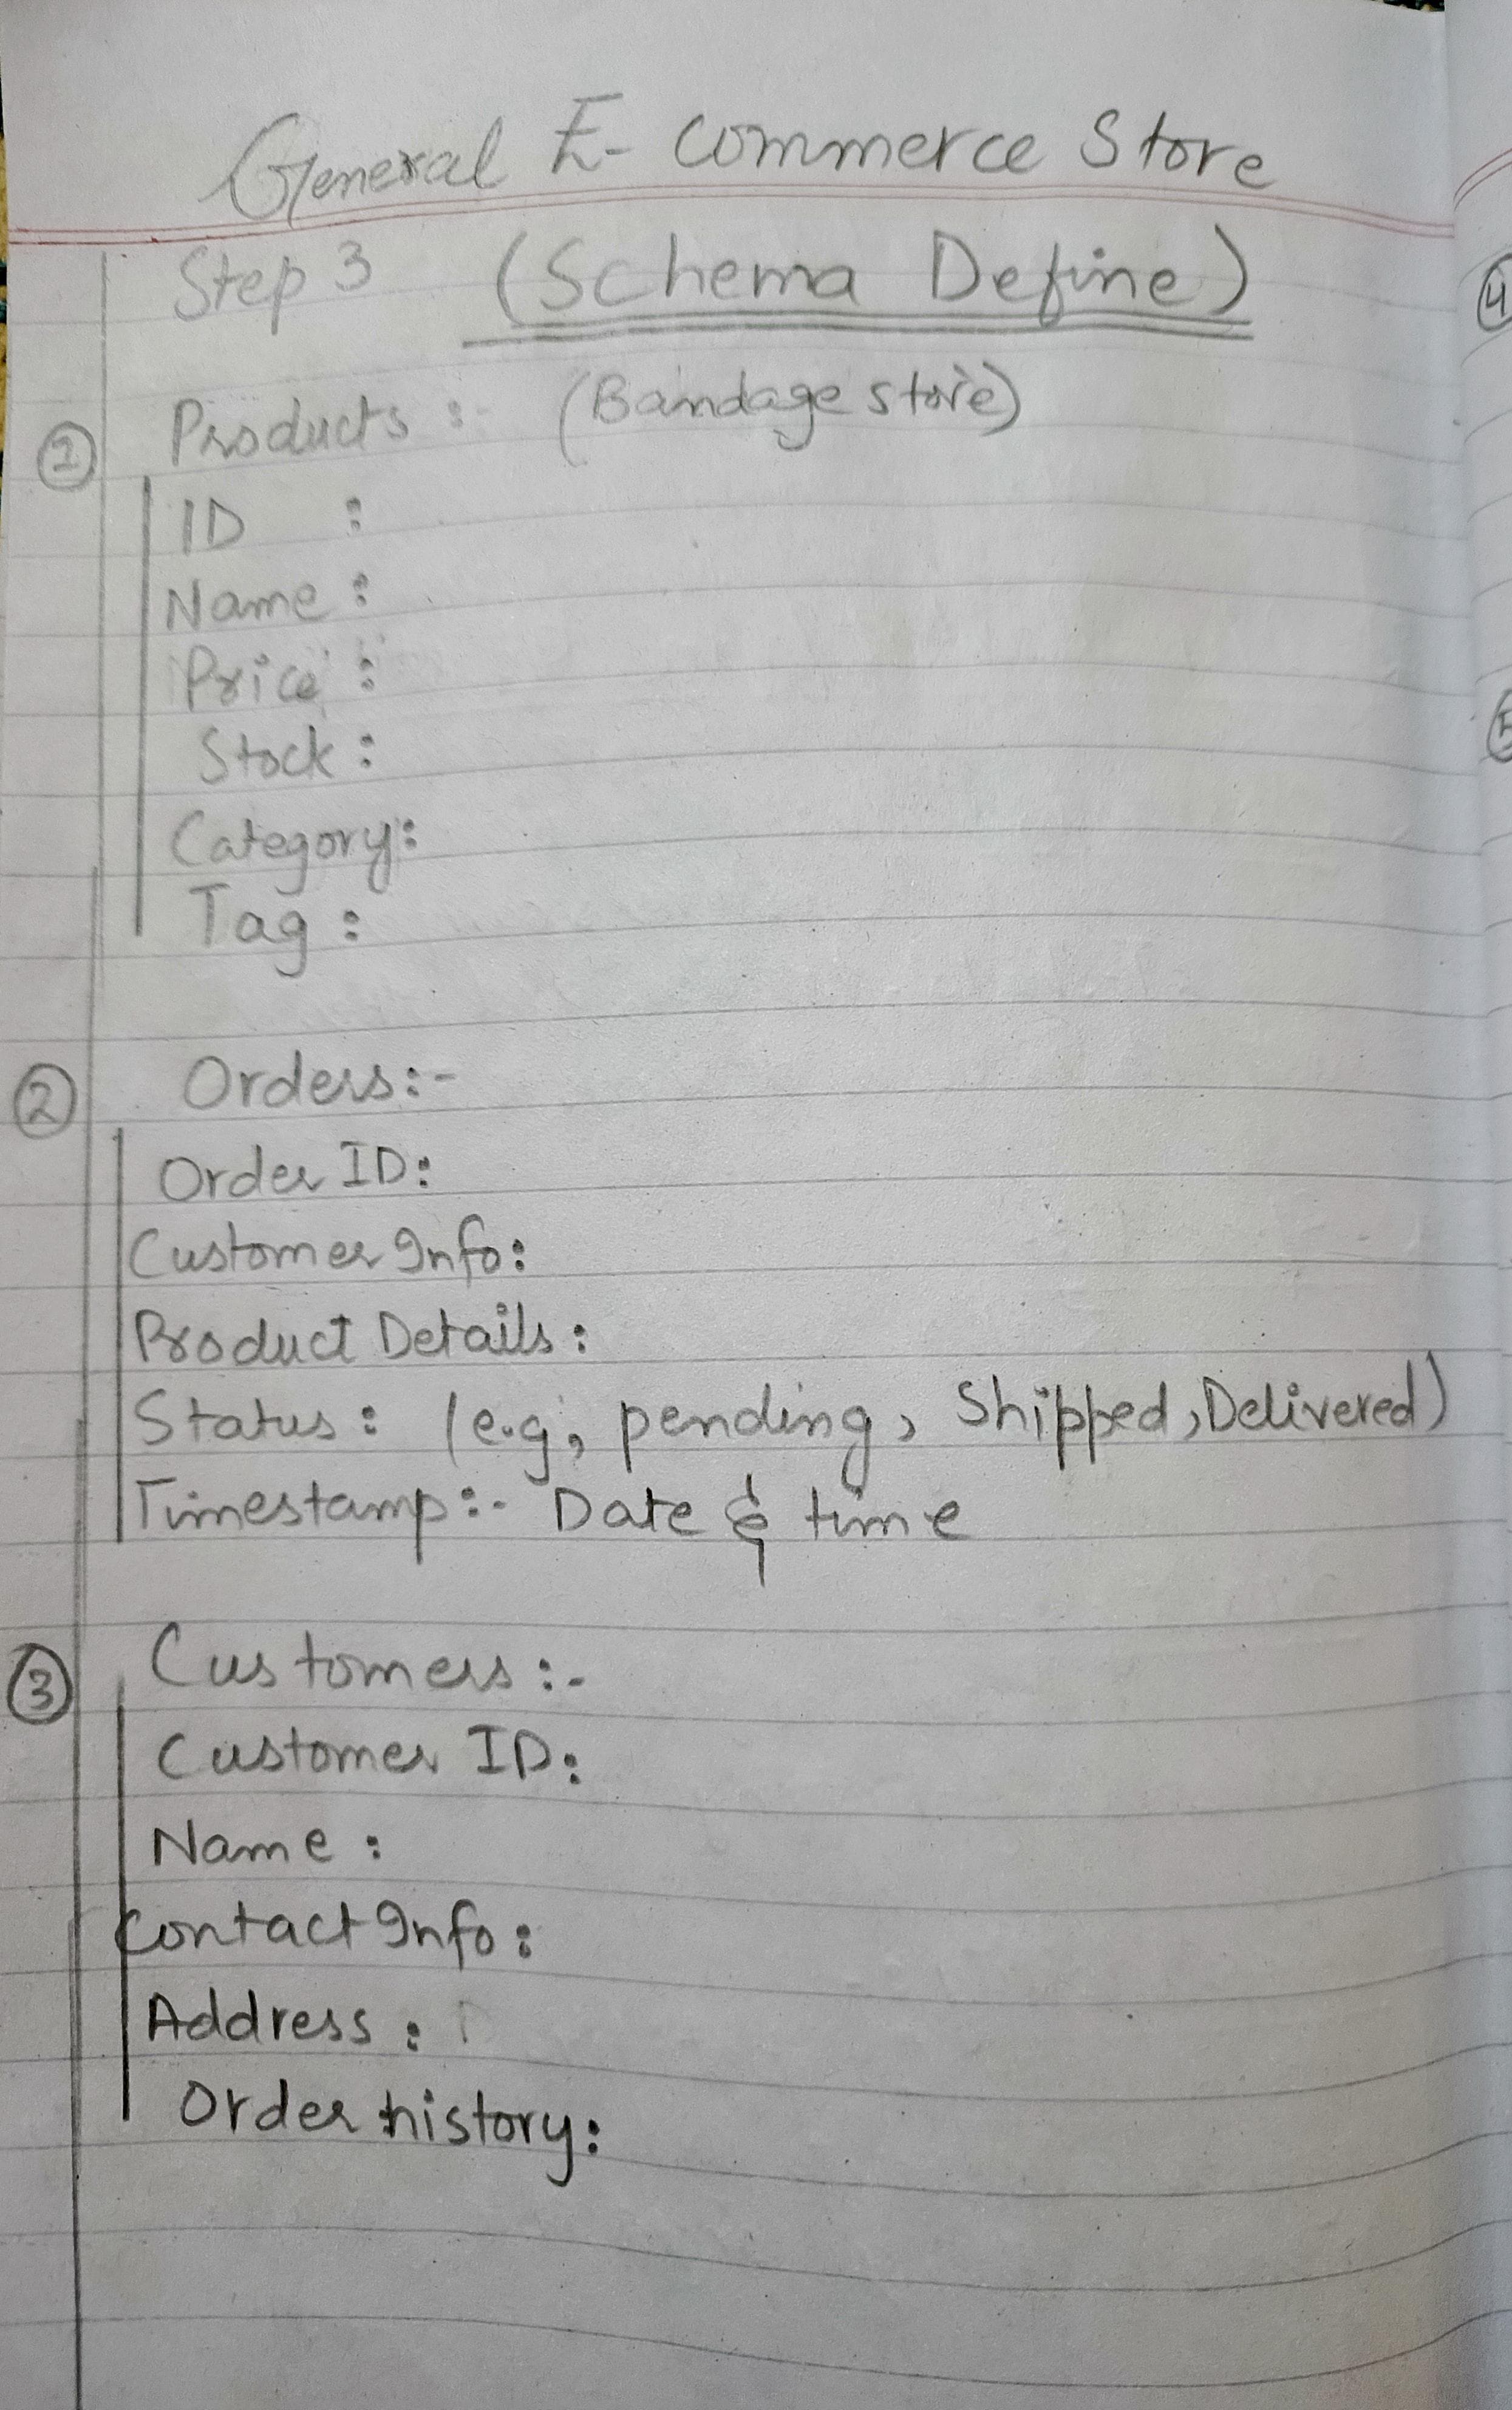 General E-Commerce Store
Step 3 (Schema Define)
① Products :- (Bandage store)
ID :
Name :
Price :
Stock :
Category:
Tag :
② Orders:-
Order ID:
Customer Info:
Product Details:
Status: (e.g, pending, Shipped, Delivered)
Timestamp:- Date & time
③ Customers:-
Customer ID:
Name :
Contact Info:
Address :
Order history:
④